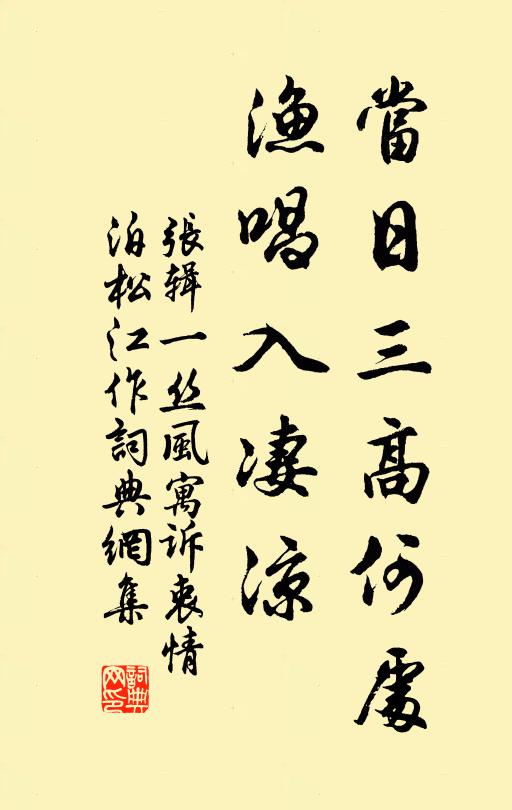 當日三高何處
漁唱入凄涼
張辑一丝風寓诉衷情
泊松江作詞典網集
詞典
网印